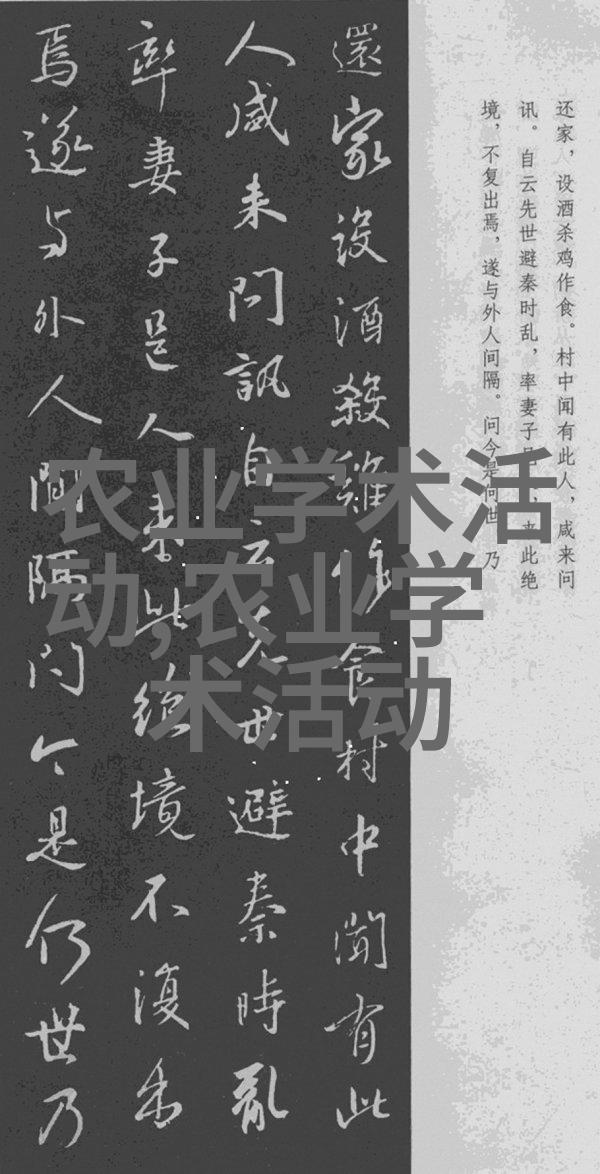 还家，设酒杀鸡作食。村中闻有此人，咸来问
讯。自云先世避秦时乱，率妻子邑，来此绝
境，不复出焉，遂与外人间隔。问今是何世，乃
還家設酒殺雞作食村中聞有此
人咸来問訊自云先世避秦時亂
率妻子邑人来此絶境不復出
焉遂与外人間隔问今是何世乃
农业学术活
动,农业学
术活动